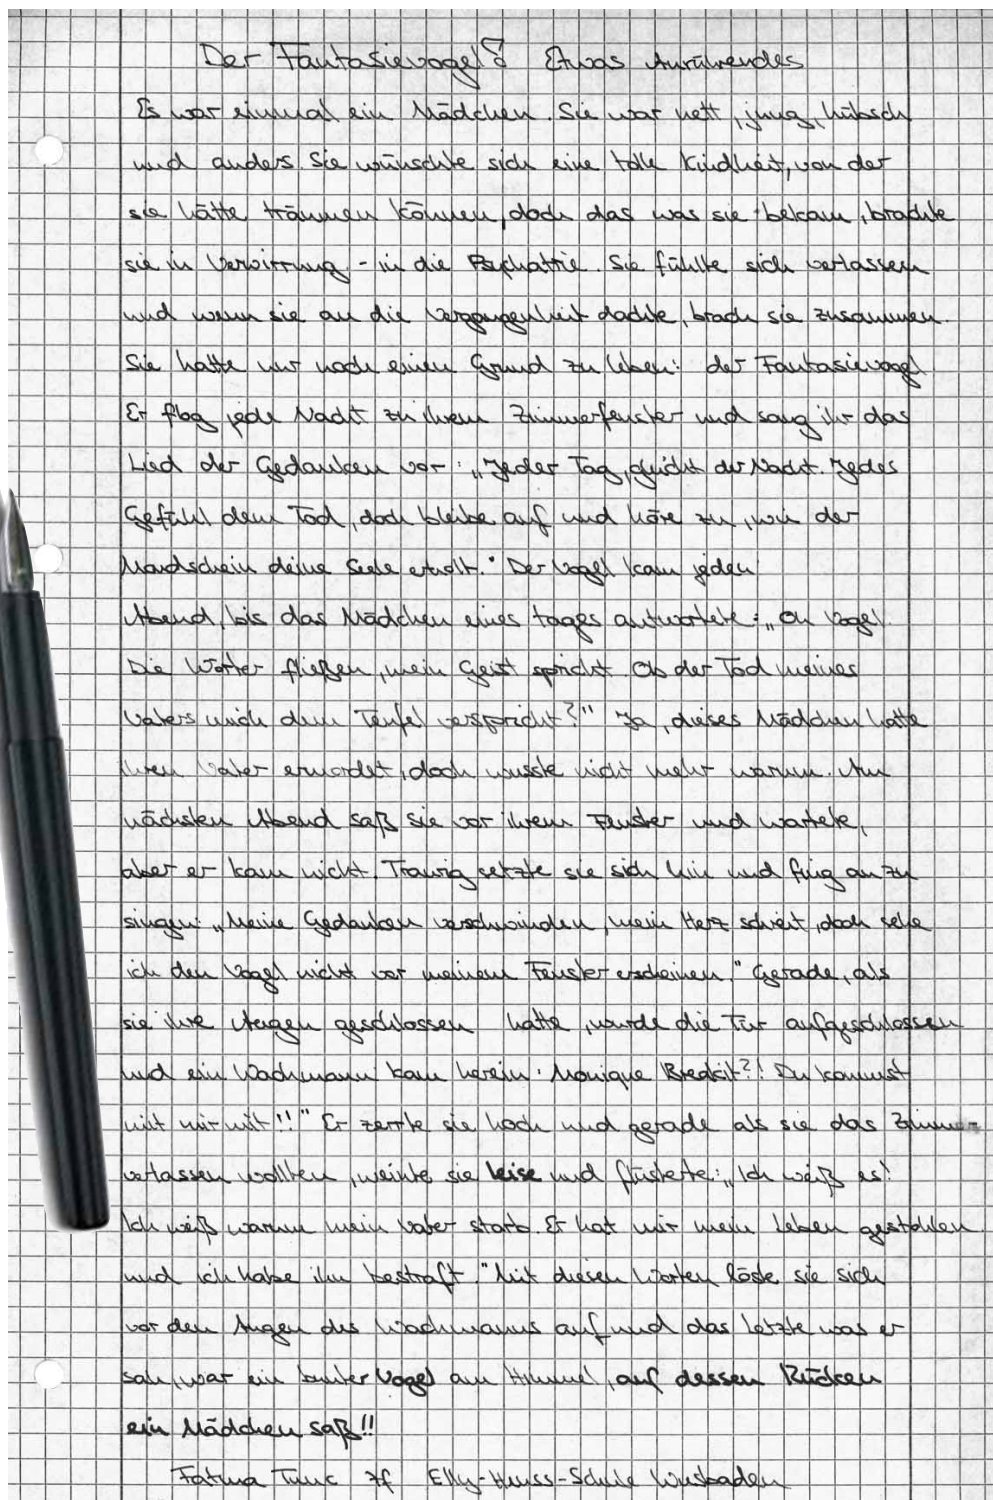 Der Fantasievogel! Etwas Anrührendes
Es war einmal ein Mädchen. Sie war nett, jung, hübsch
und anders. Sie wünschte sich eine tolle Kindheit, von der
sie hätte träumen können, doch das was sie bekam, brachte
sie in Verwirrung - in die Psychatrie. Sie fühlte sich verlassen
und wenn sie an die Vergangenheit dachte, brach sie zusammen.
Sie hatte nur noch einen Grund zu leben: der Fantasievogel
Er flog jede Nacht zu ihrem Zimmerfenster und sang ihr das
Lied der Gedanken vor: „Jeder Tag, gleicht der Nacht. Jedes
Gefühl dem Tod, doch bleibe auf und höre zu, wie der
Mondschein deine Seele erholt." Der Vogel kam jeden
Abend, bis das Mädchen eines tages antwortete: „Oh Vogel
Die Wörter fließen, mein Geist spricht. Ob der Tod meines
Vaters mich dem Teufel verspricht?" Ja, dieses Mädchen hatte
ihren Vater ermordet, doch wusste nicht mehr warum. Am
nächsten Abend saß sie vor ihrem Fenster und wartete,
aber er kam nicht. Traurig setzte sie sich hin und fing an zu
singen: „Meine Gedanken verschwinden, mein Herz schreit, doch sehe
ich den Vogel nicht vor meinem Fenster erscheinen." Gerade, als
sie ihre Augen geschlossen hatte, wurde die Tür aufgeschlossen
und ein Wachmann kam herein: Monique Breakit?! Du kommst
mit mir mit!!" Er zerrte sie hoch und gerade als sie das Zimmer
verlassen wollten, weinte sie leise und flüsterte: „Ich weiß es!
Ich weiß warum mein Vater starb. Er hat mir mein Leben gestohlen
und ich habe ihn bestraft." Mit diesen Worten löste sie sich
vor den Augen des Wachmanns auf und das letzte was er
sah, war ein bunter Vogel am Himmel, auf dessen Rücken
ein Mädchen saß!!
Fatma Tunc 7f Elly-Heuss-Schule Wiesbaden